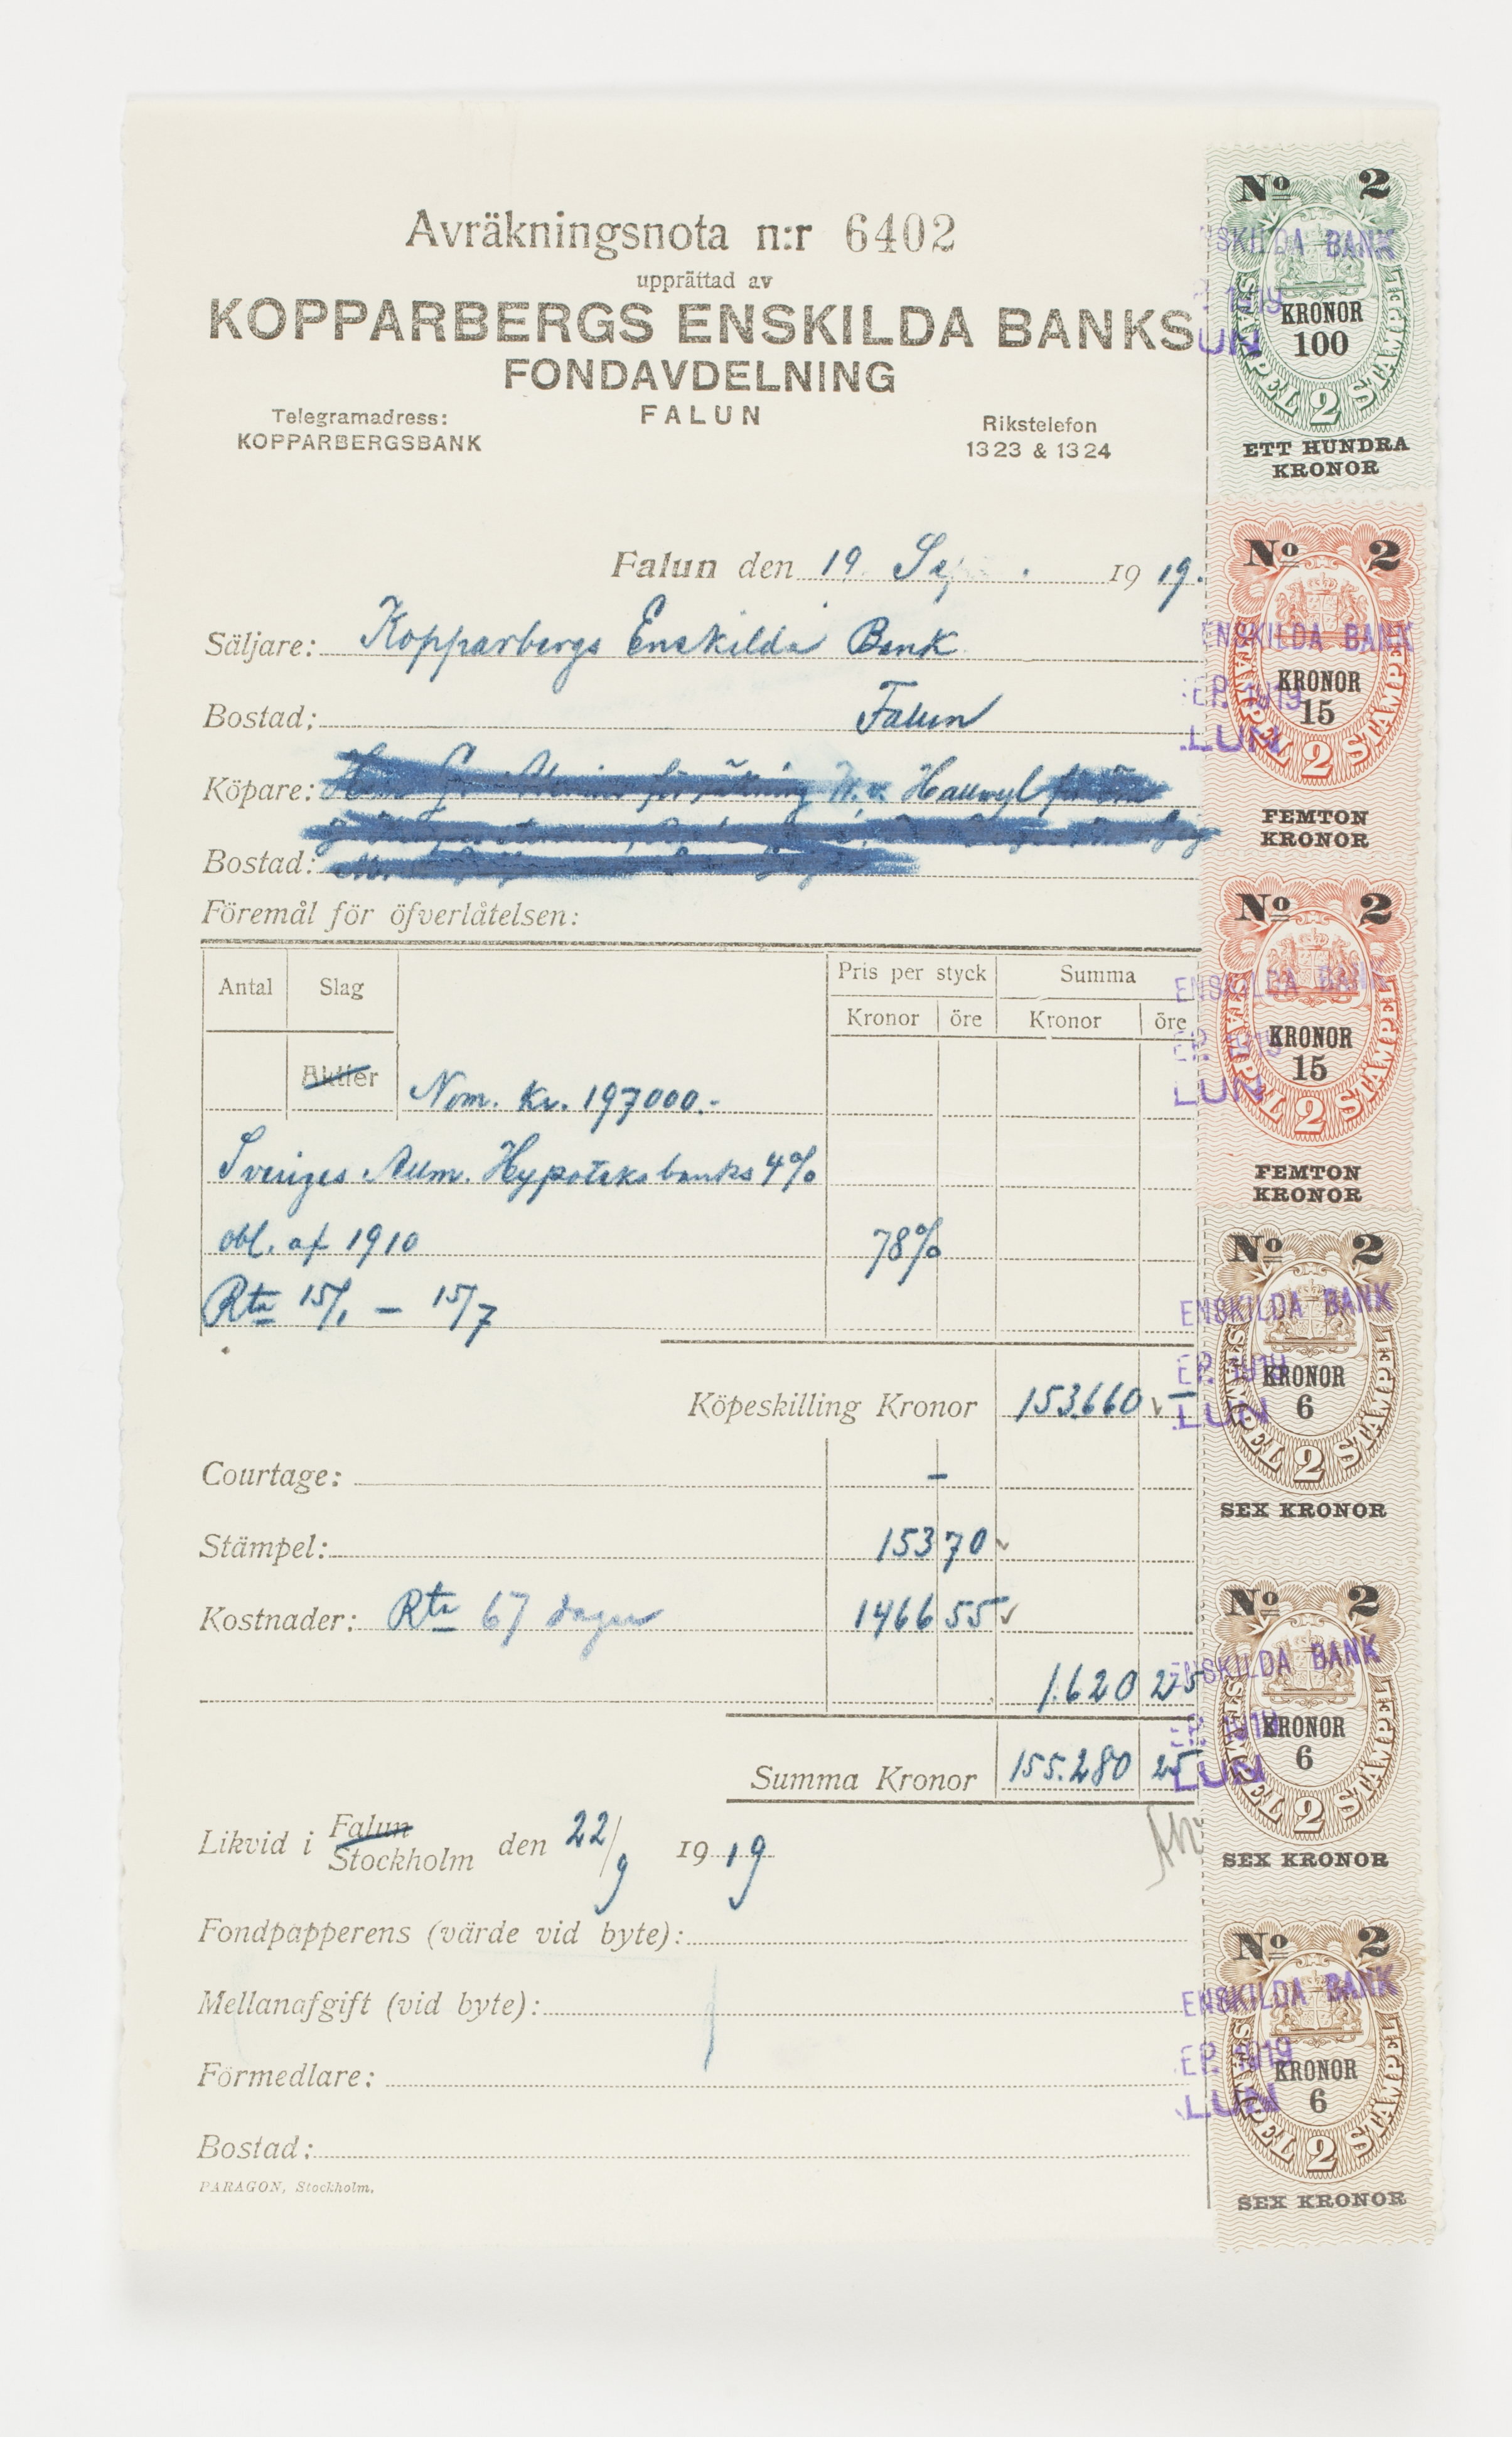 Avräkningsnota n:r 6402
upprättad av
KOPPARBERGS ENSKILDA BANKS
FONDAVDELNING
FALUN
Telegramadress:
KOPPARBERGSBANK
Rikstelefon
1323 & 1324
Falun den 19 Se 1919.
Säljare: Kopparbergs Enskilda Bank
Bostad: Falun
Köpare: W. v Hallwyl
Bostad:
Föremål för öfverlåtelsen:
Antal Slag Pris per styck Summa
Kronor öre Kronor öre
Aktier Nom. Kr. 197000.-
Sveriges Allm. Hypoteksbanks 4%
obl. af 1910 78%
Rta 15/1 – 15/7
Köpeskilling Kronor 153.660 –
Courtage: –
Stämpel: 153 70
Kostnader: Rta 67 dagar 1466 55
1.620 25
Summa Kronor 155.280 25
Likvid i Falun Stockholm den 22/9 1919
Fondpapperens (värde vid byte):
Mellanafgift (vid byte):
Förmedlare:
Bostad:
PARAGON, Stockholm.
No 2
ENSKILDA BANK
1919
LUN
KRONOR
100
STÄMPEL 2 STÄMPEL
ETT HUNDRA
KRONOR
No 2
ENSKILDA BANK
EP. 1919
LUN
KRONOR
15
STÄMPEL 2 STÄMPEL
FEMTON
KRONOR
No 2
ENSKILDA BANK
EP. 1919
LUN
KRONOR
15
STÄMPEL 2 STÄMPEL
FEMTON
KRONOR
No 2
ENSKILDA BANK
EP. 1919
LUN
KRONOR
6
STÄMPEL 2 STÄMPEL
SEX KRONOR
No 2
ENSKILDA BANK
EP. 1919
LUN
KRONOR
6
STÄMPEL 2 STÄMPEL
SEX KRONOR
No 2
ENSKILDA BANK
EP. 1919
LUN
KRONOR
6
STÄMPEL 2 STÄMPEL
SEX KRONOR